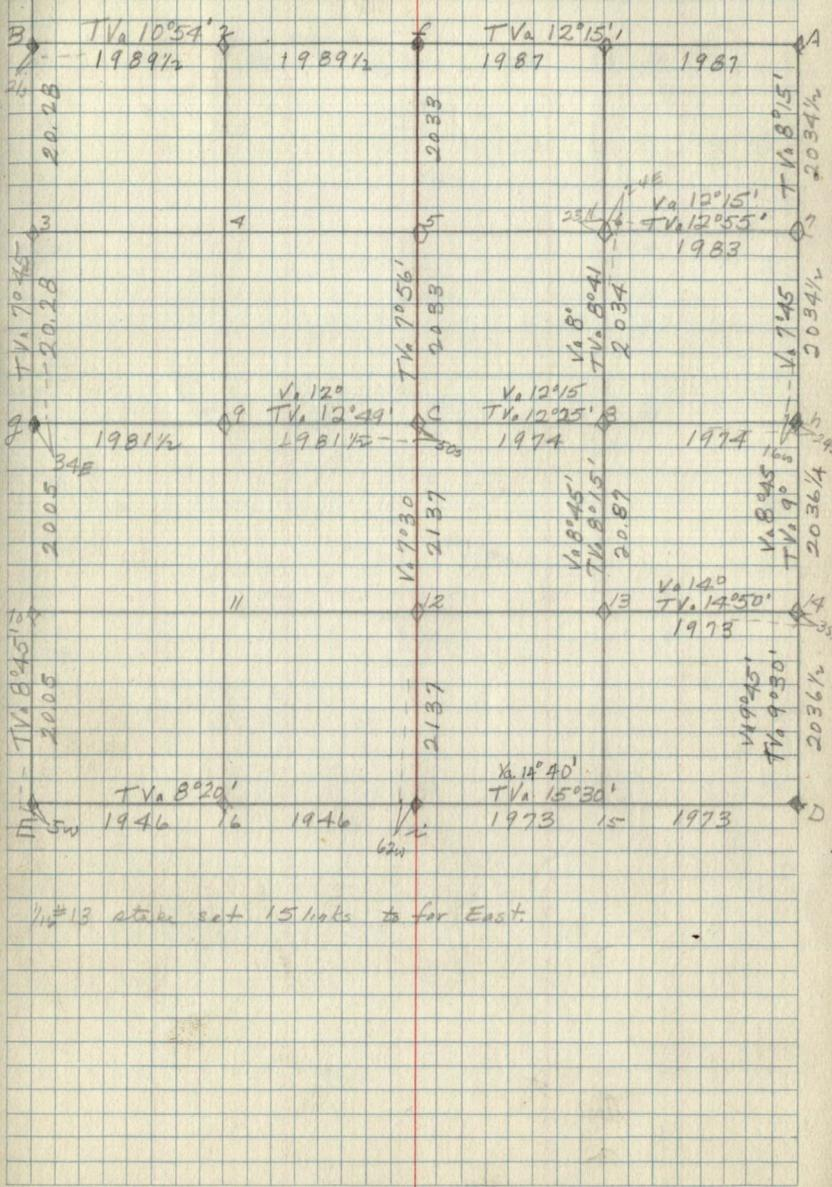 B TVa 10°54' 2 f TVa 12°15' 1 A
1989½ 1989½ 1987 1987
20.28 2033 TVa 8°15' 2034½
24E
Va 12°15'
3 4 5 6 TVa 12°55' 7
1983
TVa 7°45' 20.28 TVa 7°56' 2033 Va 8° TVa 8°41 2034 Va 7°45 2034½
Va 12° Va 12°15
g 9 TVa 12°49' C TVa 12°25' 8 h
1981½ 1981½ 50s 1974 1974 16w
34E
2005 Va 7°30 2137 Va 8°45' TVa 8°15' 20.87 Va 8°45 TVa 9° 2036¼
Va 14°
10 11 12 13 TVa 14°50' 14
1973
TVa 8°45' 20.05 2137 Va 9°45' TVa 9°30' 2036½
Va 14°40'
TVa 8°20' TVa 15°30' D
m 5w 1946 16 1946 62w i 1973 15 1973
1/16 #13 stake set 15 links to far East.